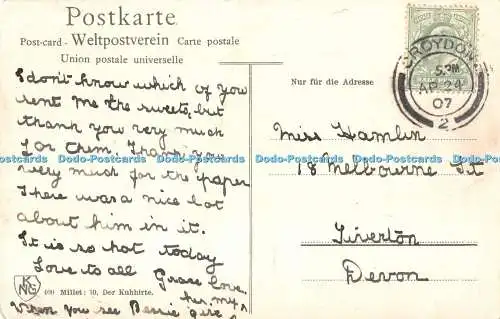 Postkarte
Post-card - Weltpostverein Carte postale
Union postale universelle
I don't know which of you
sent me the sweets, but
thank you very much
for them. Thank you
very much for the paper
There was a nice lot
about him in it.
It is so hot today
Love to all
Grace
KNG
400 Millet: 10, Der Kuhhirte.
When you see Bessie give
her my love
Nur für die Adresse
CROYDON
5. PM
AP 29
07
2
Miss Hamlin
18 Melbourne St
Tiverton
Devon
Dodo-Postcards Dodo-Postcards Dodo-Postcards Dodo-Postcards Dodo-Postcards Dodo-Postcards